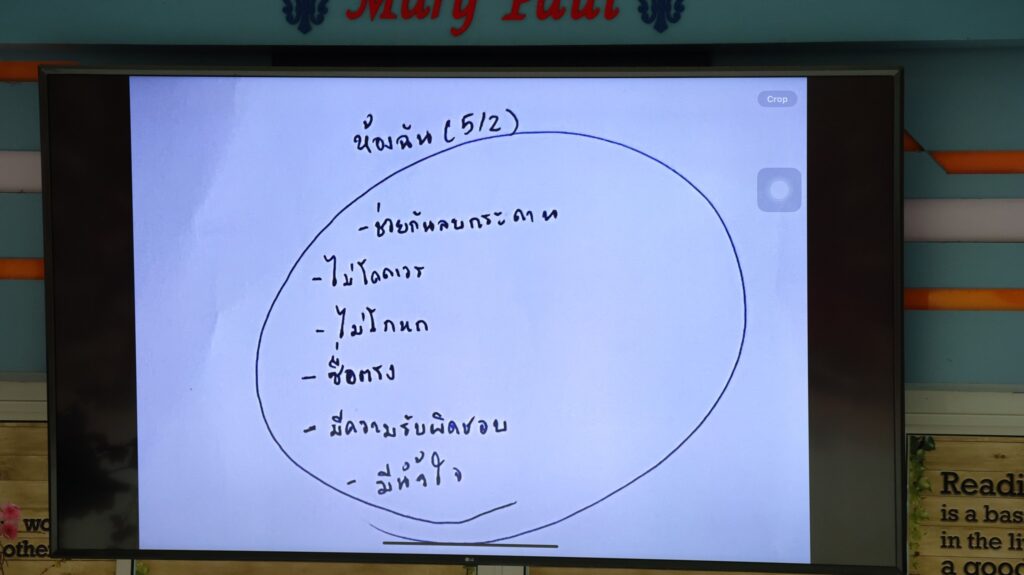 Mary Paul
Crop
ห้องฉัน (5/2)
- ช่วยกันลบกระดาน
- ไม่โดดเวร
- ไม่โกหก
- ซื่อตรง
- มีความรับผิดชอบ
- มีน้ำใจ
LG
wo
othe
Readi
is a bas
in the li
a good